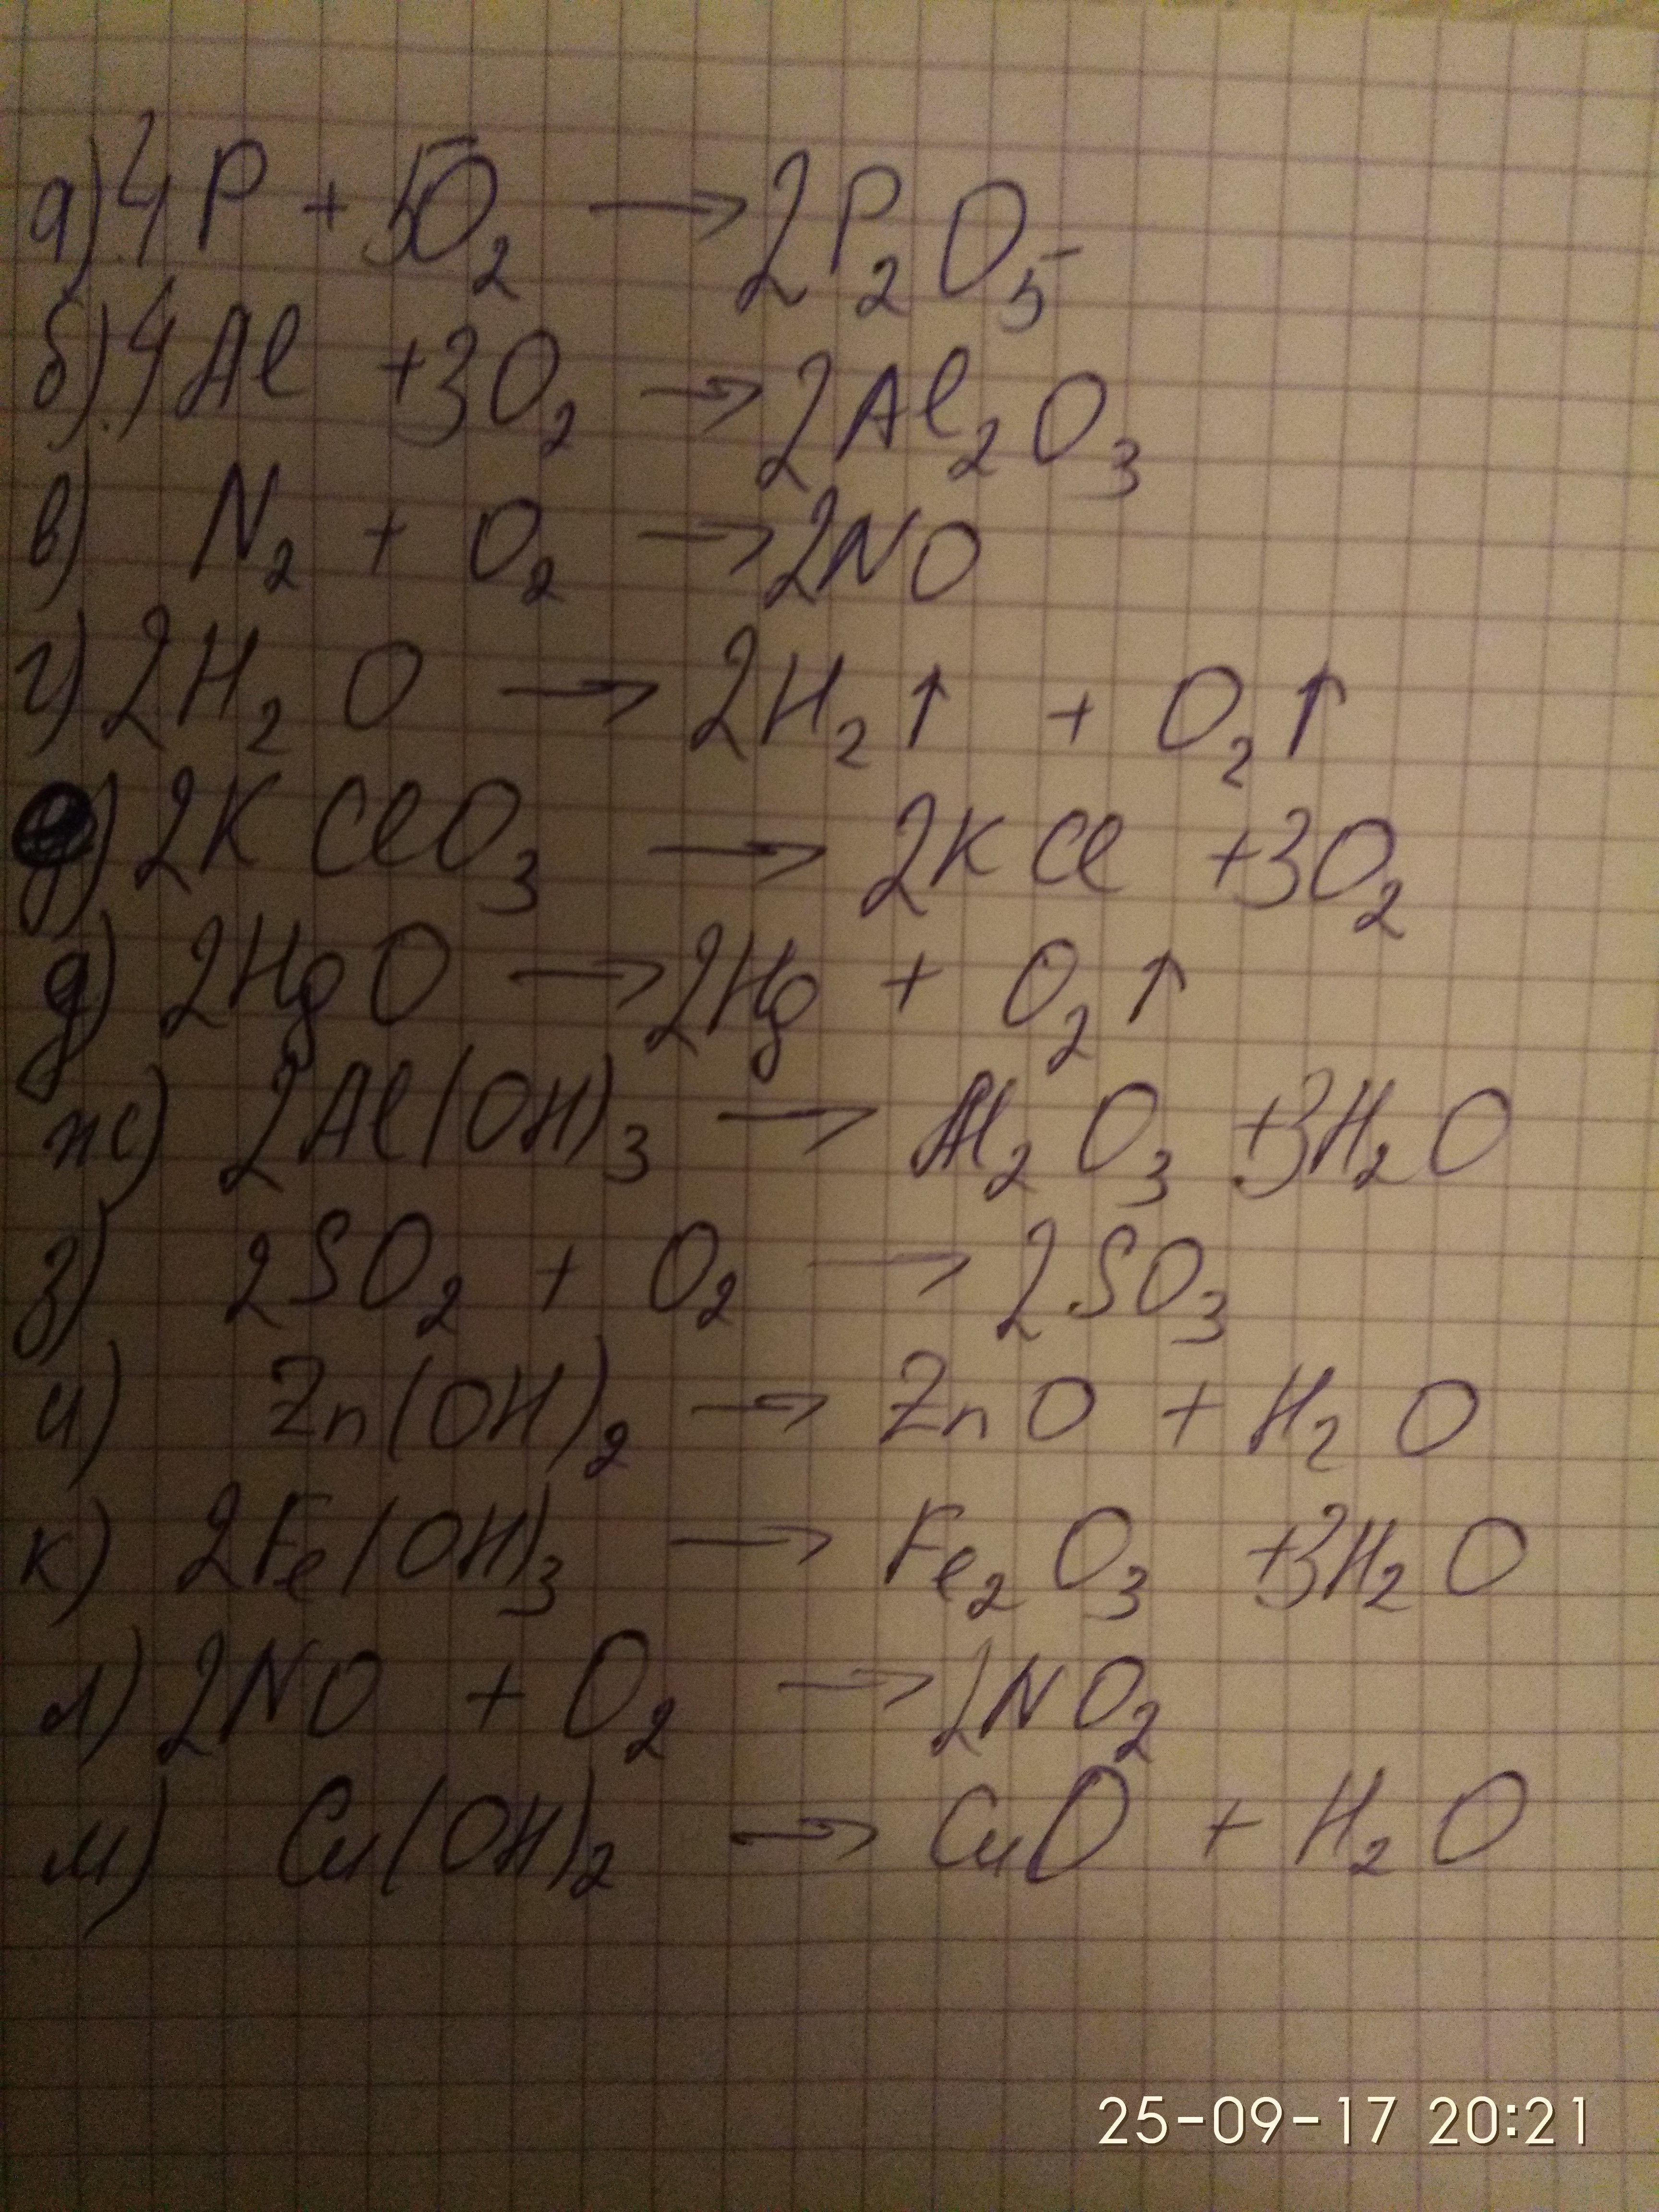 а) 4P + 5O₂ → 2P₂O₅
б) 4Al + 3O₂ → 2Al₂O₃
в) N₂ + O₂ → 2NO
г) 2H₂O → 2H₂↑ + O₂↑
) 2KClO₃ → 2KCl + 3O₂
д) 2HgO → 2Hg + O₂↑
ж) 2Al(OH)₃ → Al₂O₃ + 3H₂O
з) 2SO₂ + O₂ → 2SO₃
и) Zn(OH)₂ → ZnO + H₂O
к) 2Fe(OH)₃ → Fe₂O₃ + 3H₂O
л) 2NO + O₂ → 2NO₂
м) Cu(OH)₂ → CuO + H₂O
25-09-17 20:21